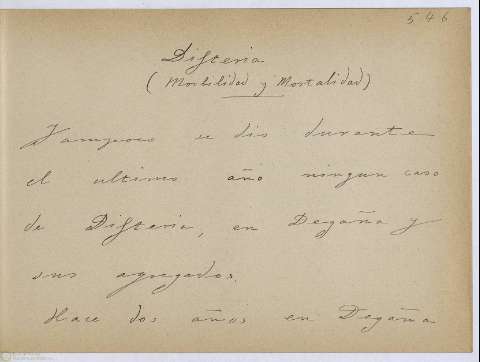 546
Difteria
(Morbilidad y Mortalidad)
Tampoco se dio durante
el ultimo año ningun caso
de Difteria, en Degaña y
sus agregados.
Hace dos años en Degaña